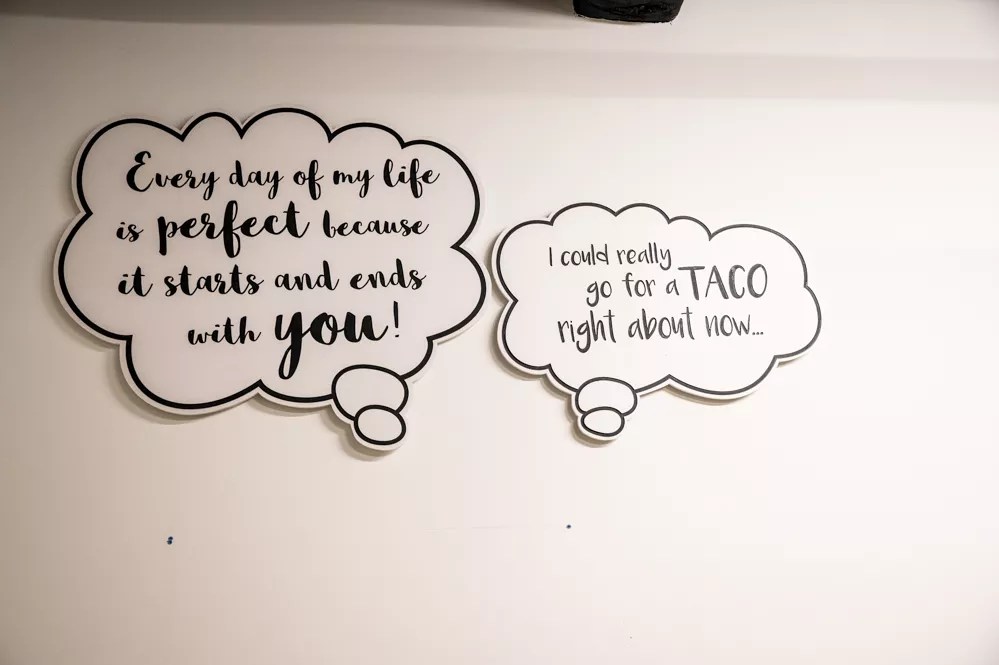 Every day of my life
is perfect because
it starts and ends
with you!
I could really
go for a TACO
right about now...